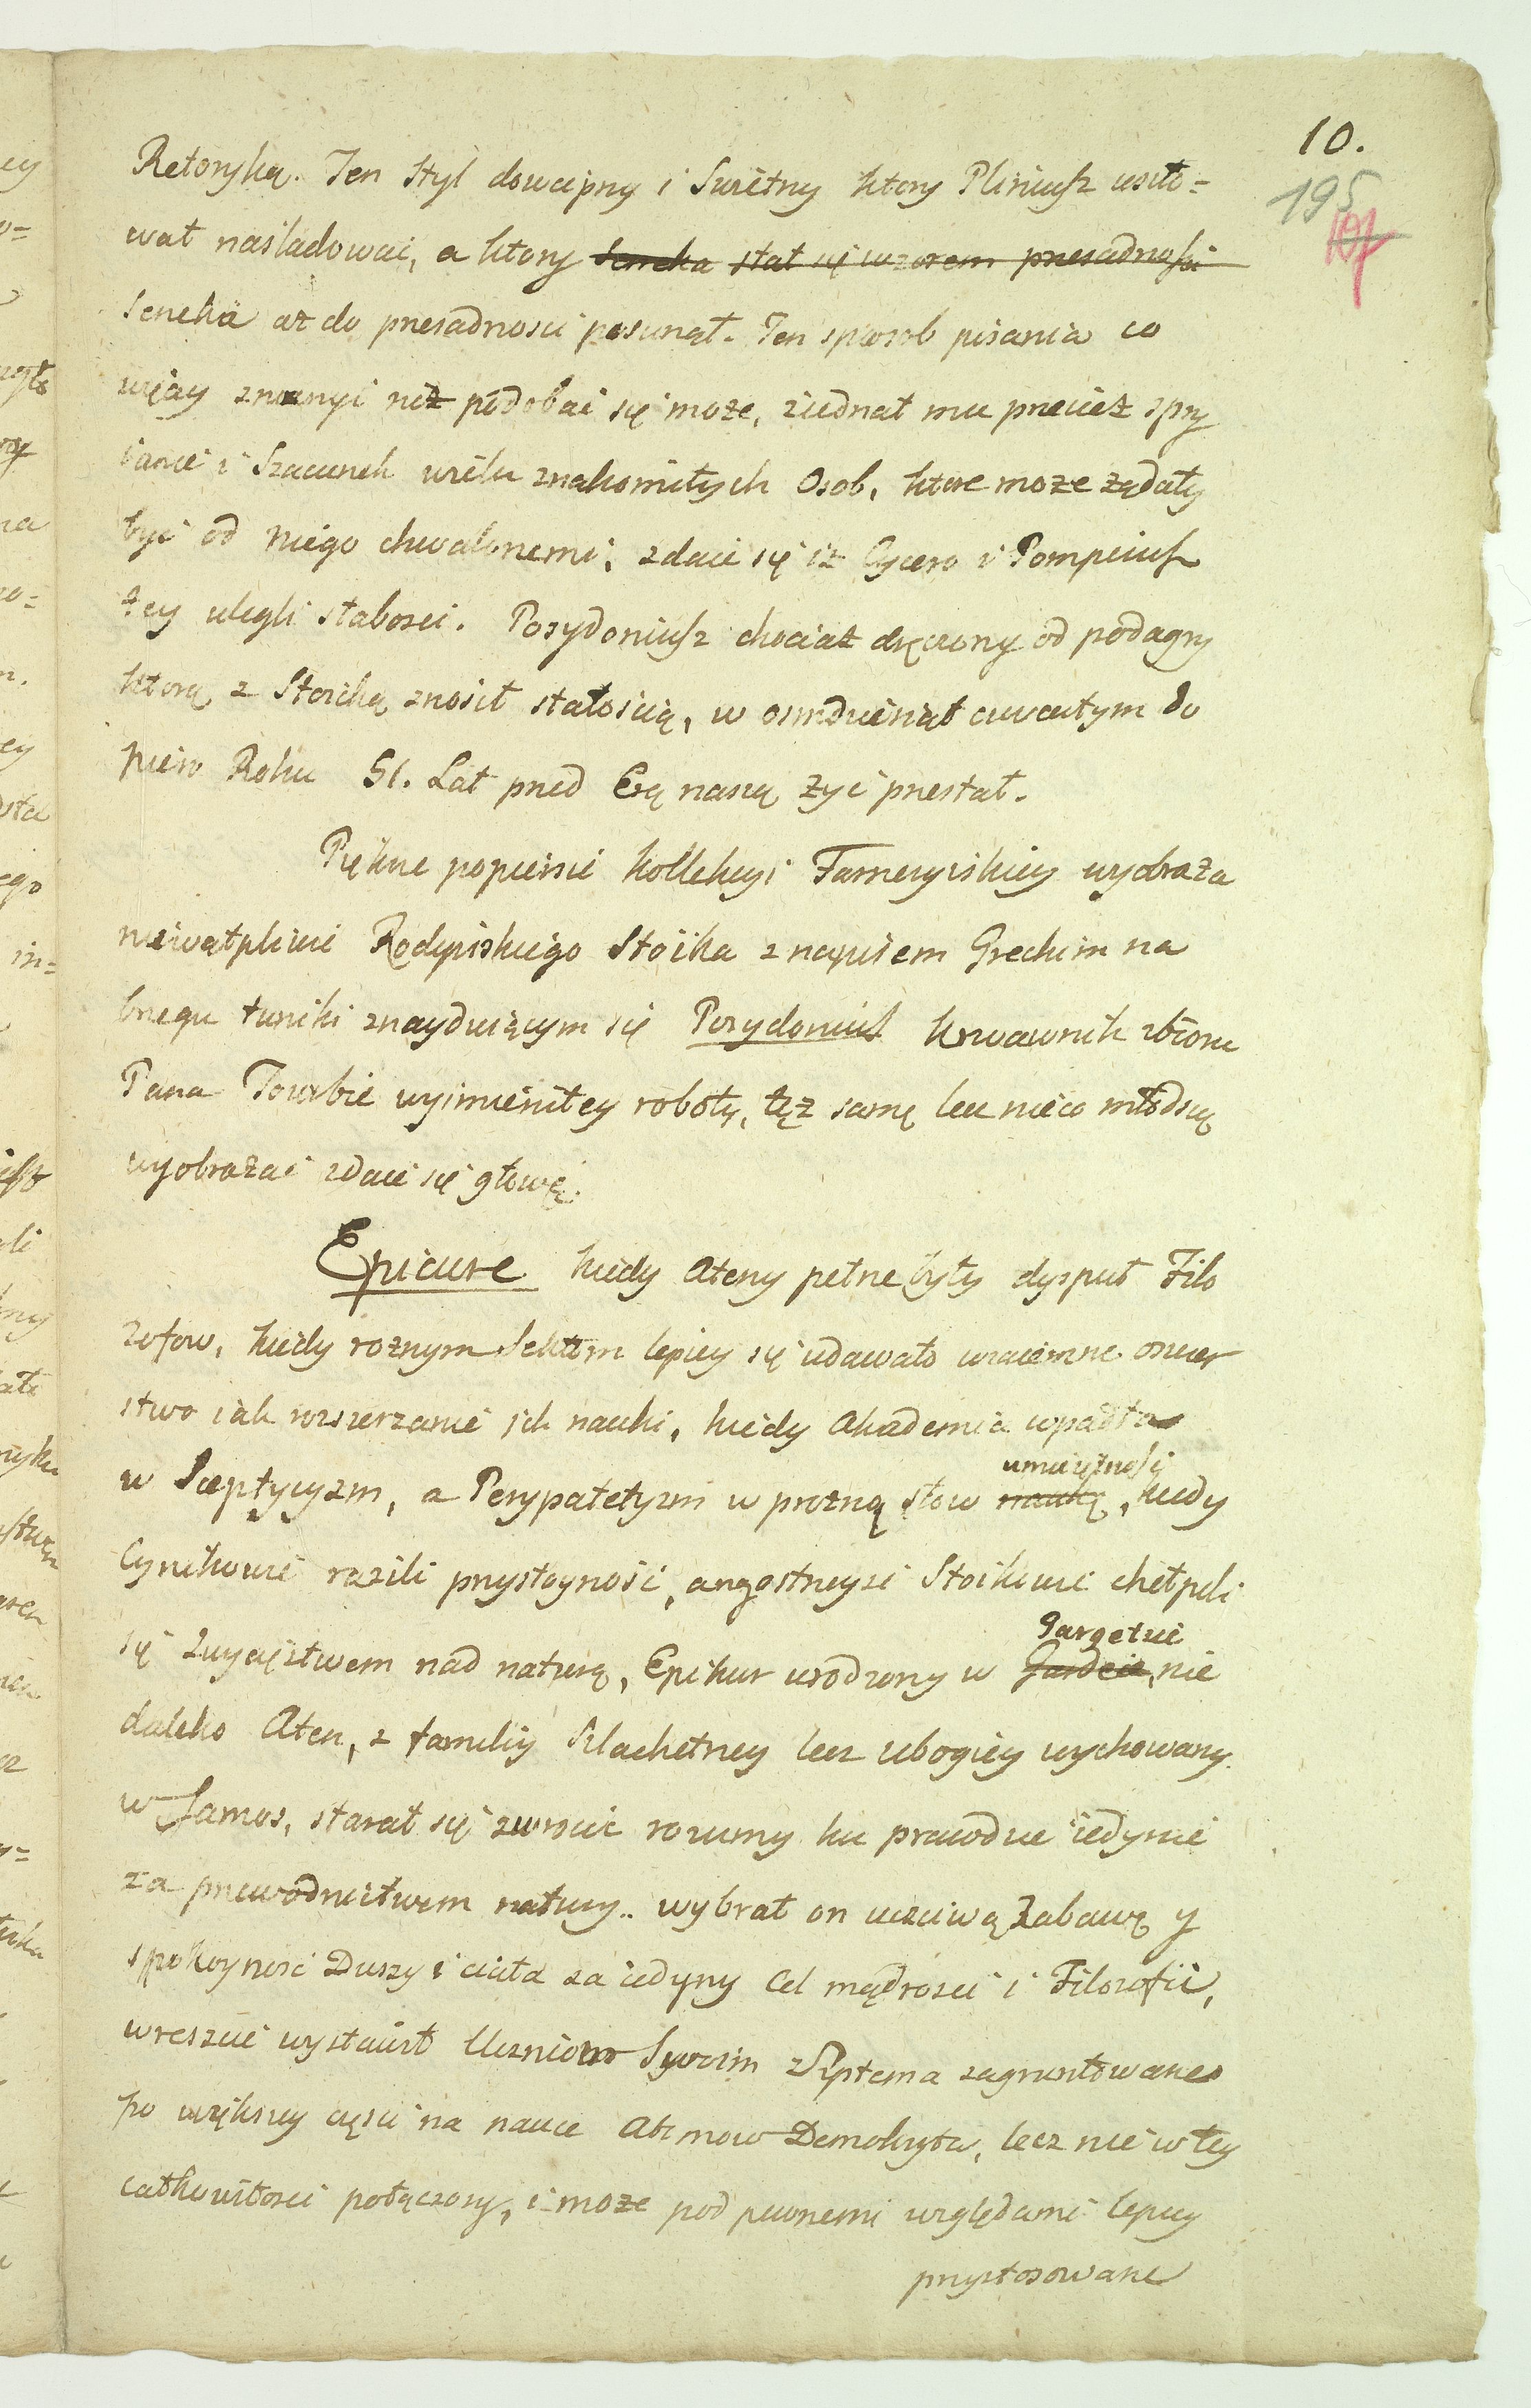 10.
195
Retoryką. Ten Styl dowcipny i Swietny ktory Pliniusz usiło=
wał nasladować, a ktory Seneka stał się wzorem przesadnosci
Seneka aż do przesadnosci posunął. Ten sposob pisania co
więcey znaczyć niż podobać się może, ziednał mu przecież sprzy
ianie i Szacunek wielu znakomitych Osob, ktore może żądały
być od niego chwalonemi, zdaie się iż Cycero i Pompeiusz
tey ulegli słabosci. Posydoniusz chociaż dręczony od podagry
ktorą z Stoicką znosił stałoscią, w osmdziesiąt czwartym do
piero Roku 51. Lat przed Erą naszą żyć przestał.
Piękne popiersie kollekcyi Farnezyiskiey wyobraża
niewątpliwie Rodyiskiego Stoika z napisem Greckim na
brzegu tuniki znayduiącym się Posydonius Krwawnik zbioru
Pana Towbie wyimienitey roboty, też samę lecz nieco młodszą
wyobrażać zdaie się głowę.
Epicure kiedy Ateny pełne były dysput Filo
zofow, kiedy rożnym Sektom lepiey się udawało wzaiemne oszczer
stwo iak rozszerzanie ich nauki, kiedy Akademia wpadła
w Sceptycyzm, a Perypatetyzm w prożną słow naukę, kiedy
umieiętność
Cynikowie razili przystoyność, a nayostrzeysi Stoikowie chełpili
się zwycięstwem nad naturą, Epikur urodzony w Gardcie, nie
Gargetcie
daleko Aten, z familiy Szlachetney lecz ubogiey wychowany
w Samos, starał się zwrocić rozumy ku prawdzie iedynie
za przewodnictwem natury.. wybrał on uczciwą Zabawę y
spokoyność Duszy i ciała za iedyny Cel mądrosci i Filozofii,
wreszcie wystawił Uczniom Swoim Systema zagruntowane
po większey części na nauce Atomow Demokryta, lecz nie w tey
całkowitosci połączony, i może pod pewnemi względami lepiey
przystosowane